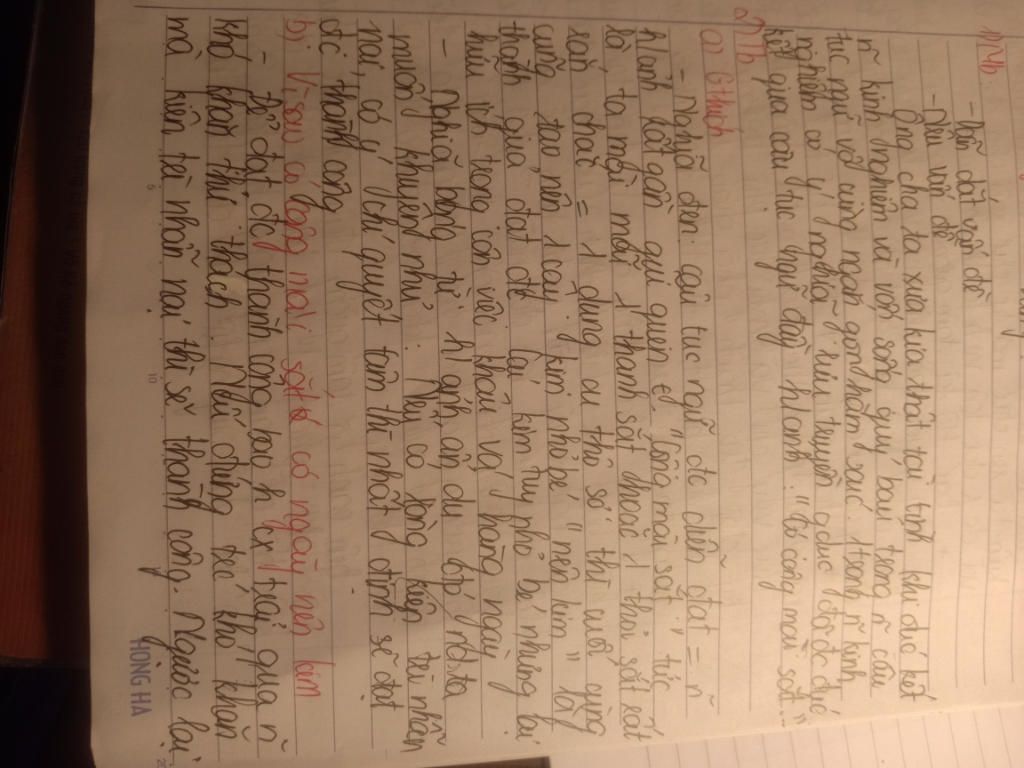 1) Mb.
- Dẫn dắt vấn đề
- Nêu vấn đề
Ông cha ta xưa kia thật tài tình khi đúc kết
n~ kinh nghiệm và vốn sống quý báu trong n~ câu
tục ngữ vô cùng ngắn gọn hàm xúc. 1 trong n~ kinh
nghiệm có ý nghĩa lưu truyền, gdục đó đc đúc
kết qua câu tục ngữ đầy h/ảnh: "Có công mài sắt ..."
2) Tb
a) Gthích
- Nghĩa đen: câu tục ngữ đc diễn đạt = n~
h/ảnh rất gần gũi quen t "Công mài sắt" tức
là, ta mài mỗi 1 thanh sắt hoặc 1 thỏi sắt rất
rắn chắc = 1 dụng cụ thô sơ thì cuối cùng
cũng tạo nên 1 cây kim nhỏ bé "nên kim" lấy
thành quả đạt đc cái kim tuy nhỏ bé nhưng lại
hữu ích trong công việc khâu vá hàng ngày
- Nghĩa bóng từ h/ảnh ẩn dụ đó, nd ta
muốn khuyên nhủ: Nếu có lòng kiên trì nhẫn
nại, có ý chí quyết tâm thì nhất định sẽ đạt
đc thành công
b) Vì sao có công mài sắt có ngày nên kim
- Để đạt đc thành công bao h cx trải qua n~
khó khăn thử thách. Nếu đứng trc khó khăn
mà kiên trì nhẫn nại thì sẽ thành công. Ngược lại
HONG HA